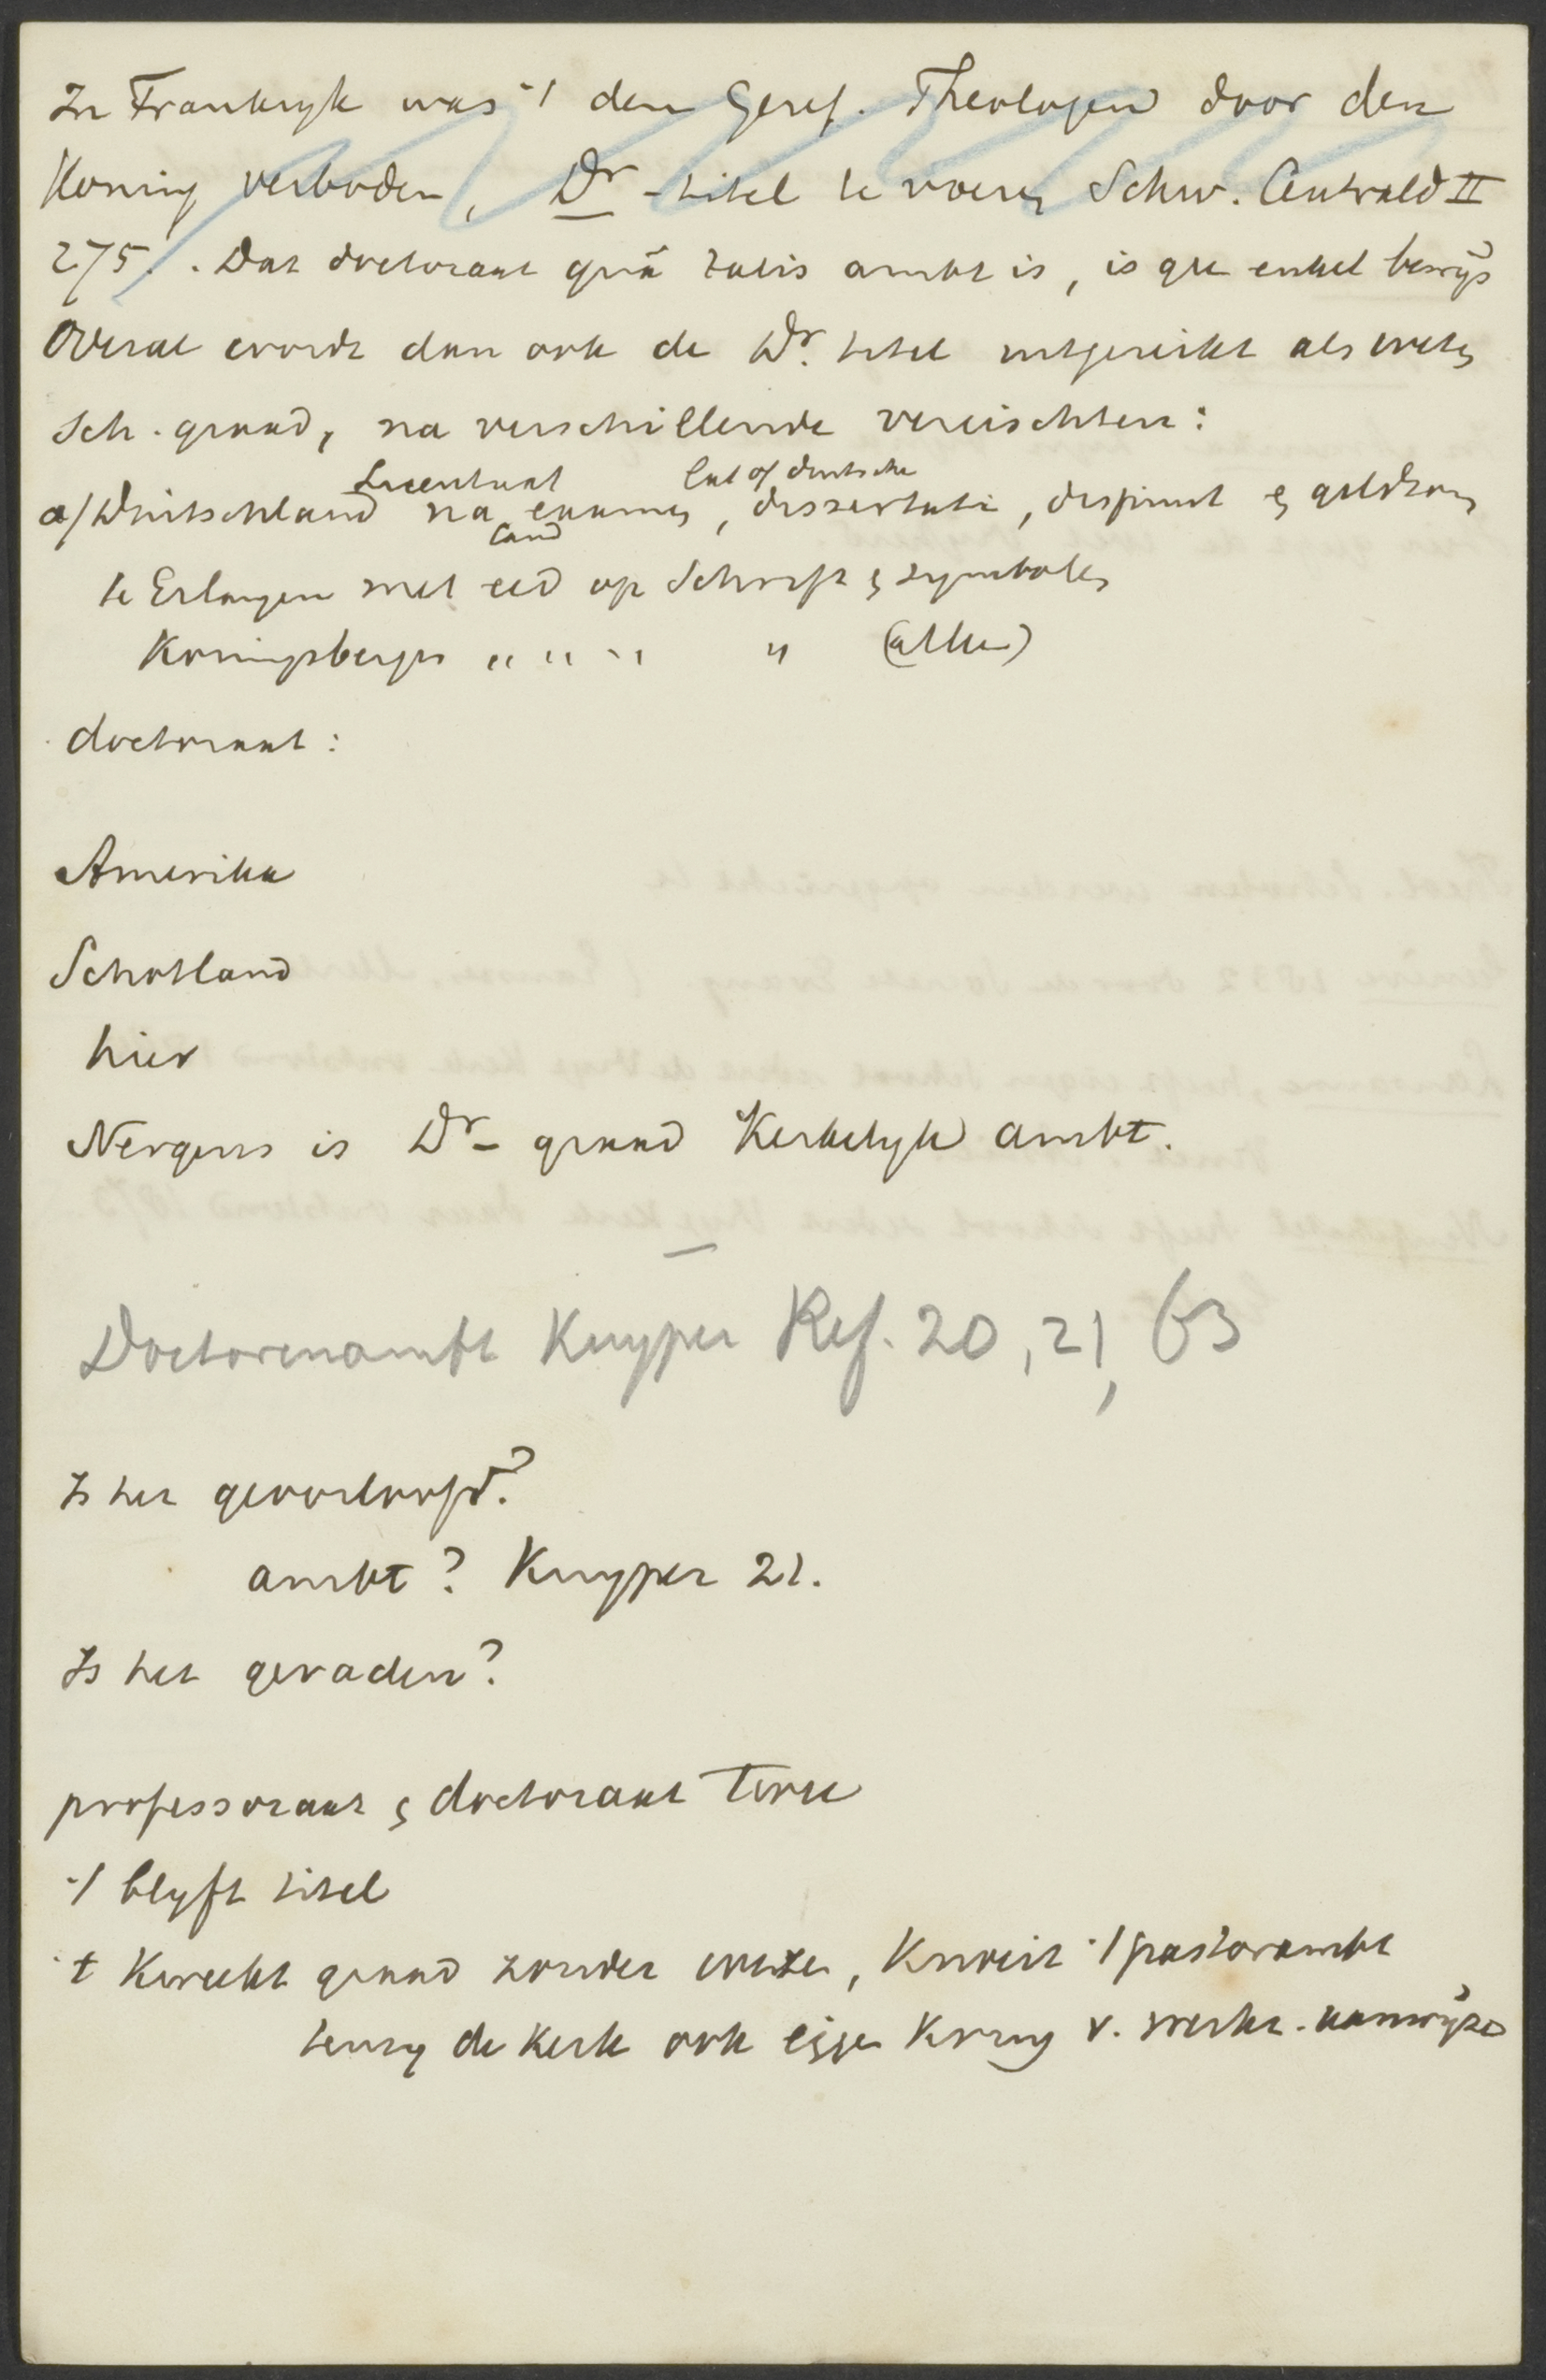 In Frankryk was 't den Geref. Theologen door den
Koning verboden, Dr -titel te voeren Schw. Centrald II
275. . Dat doctoraat quâ talis ambt is, is gee enkel bewijs
Overal wordt dan ook de Dr. titel uitgereikt als weten
sch. graad, na verschillende vereischten:
Licentiaat Lat of duitsche
a/ Duitschland na examen, dissertatie, dispuut en geldsom
Cand
te Erlangen met eed op Schrift en symbolen
Koningsbergen " " " " (alleen)
doctoraat:
Amerika
Schotland
hier
Nergens is Dr - graad Kerkelyk ambt.
Doctorenambt Kuyper Ref. 20, 21, 63
Is het geoorloofd?
ambt? Kuyper 21.
Is het geraden?
professoraat en doctoraat
't blyft titel
't graad zonder , 't pastorambt
tenzy de Kerk ook eigen Kring v. werkz. aanwijze